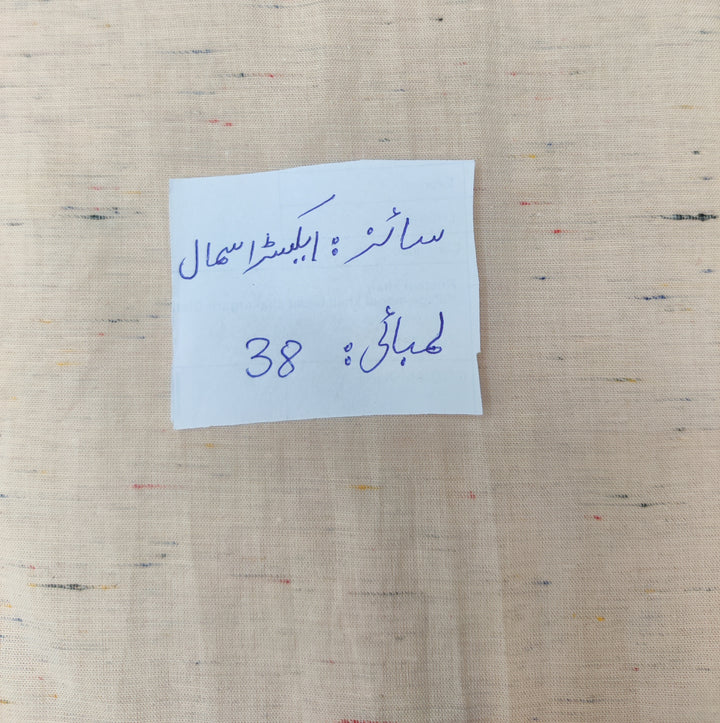 سائز: ایکسٹرا سمال
لمبائی: 38